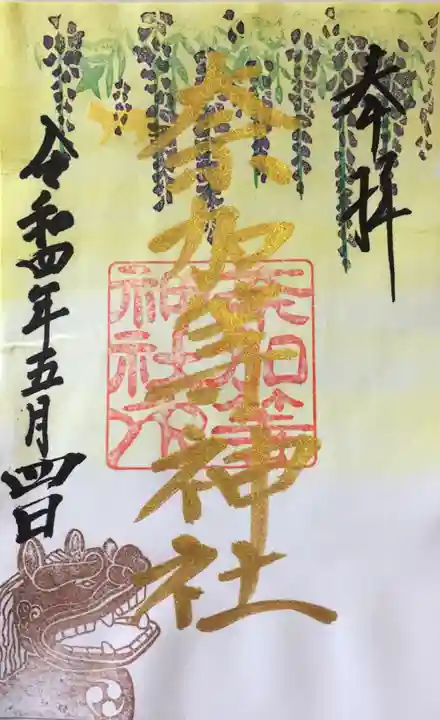 奉拝
奈加等神社
奈加等
神社印
令和四年五月四日